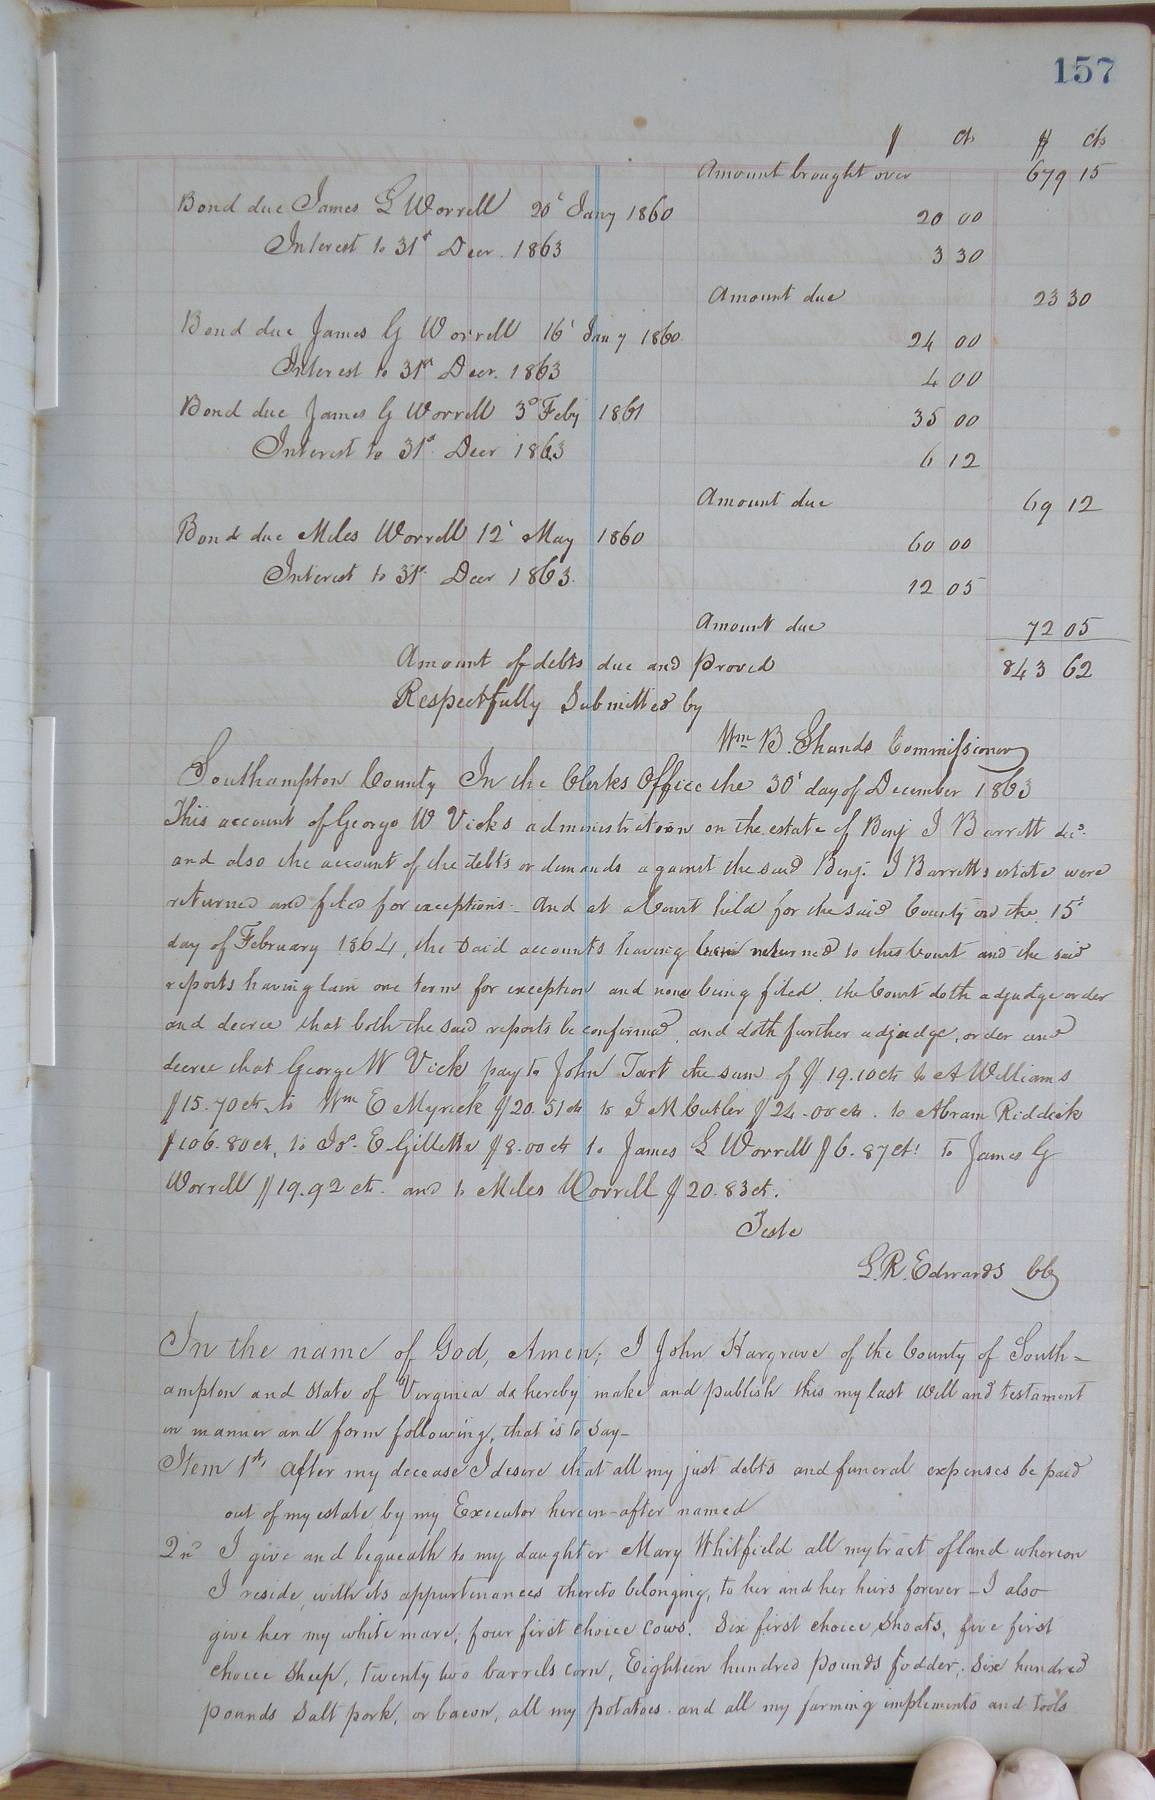 157
$ cts $ cts
Amount brought over 679 15
Bond due James L Worrell 20t Jany 1860 20 00
Interest to 31st Decr. 1863 3 30
Amount due 23 30
Bond due James G Worrell 16t Jany 1860 24 00
Interest to 31st Decr. 1863 4 00
Bond due James G Worrell 3d Feby 1861 35 00
Interest to 31st Decr 1863 6 12
Amount due 69 12
Bond due Miles Worrell 12t May 1860 60 00
Interest to 31st Decr 1863. 12 05
Amount due 72 05
Amount of debts due and proved 843 62
Respectfully Submitted by
Wm B. Shands Commissioner
Southampton County In the Clerks Office the 30t day of December 1863
This account of George W Vicks administration on the estate of Benj J Barrett decd.
and also the account of the debts or demands against the said Benj. J Barretts estate were
returned and filed for exceptions - And at a Court held for the said County on the 15t
day of February 1864, the said accounts having been returned to this Court and the said
reports having lain one term for exception and none being filed, the Court doth adjudge order
and decree that both the said reports be confirmed, and doth further adjudge, order and
decree that George W Vick pay to John Tart the sum of $19.10cts to A Williams
$15.70cts to Wm E Myrick $20.51cts to J M Cutler $24.00cts. to Abram Riddick
$106.80ct, to Jos. E Gillette $8.00cts to James L Worrell $6.87cts to James G
Worrell $19.92cts. and to Miles Worrell $20.83ct.
Teste
L. R. Edwards CC
In the name of God, Amen; I John Hargrave of the County of South-
ampton and State of Virginia do hereby make and publish this my last Will and testament
in manner and form following, that is to say-
Item 1st, After my decease I desire that all my just debts and funeral expenses be paid
out of my estate by my Executor herein-after named
2nd I give and bequeath to my daughter Mary Whitfield all my tract of land whereon
I reside, with its appurtenances thereto belonging, to her and her heirs forever - I also
give her my white mare, four first choice cows. Six first choice Shoats, five first
choice Sheep, twenty two barrels corn, Eighteen hundred pounds fodder, Six hundred
pounds Salt pork, or bacon, all my potatoes and all my farming implements and tools